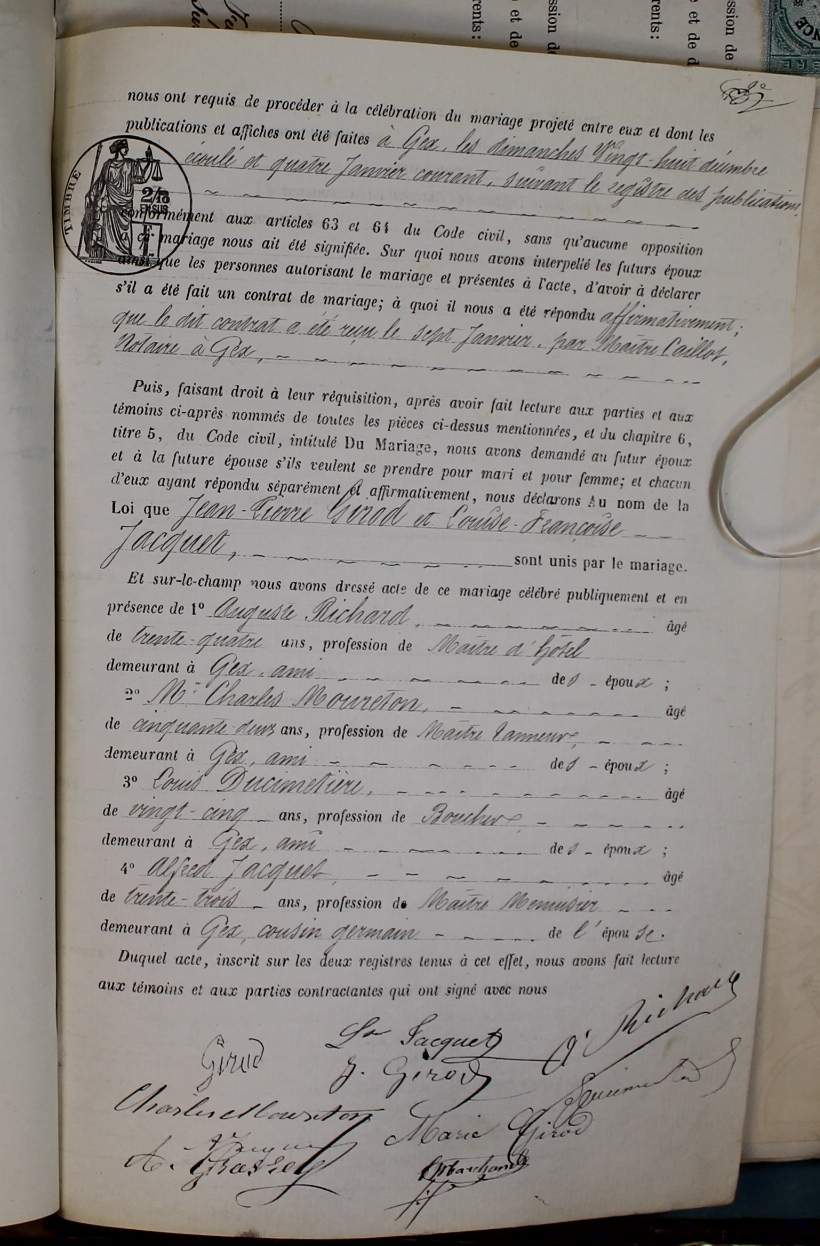 nous ont requis de procéder à la célébration du mariage projeté entre eux et dont les
publications et affiches ont été faites à Gex, les dimanches Vingt-huit décembre
écoulé et quatre Janvier courant, suivant le registre des publications,
TIMBRE
2/10
EN SUS
conformément aux articles 63 et 64 du Code civil, sans qu'aucune opposition
ce mariage nous ait été signifiée. Sur quoi nous avons interpellé les futurs époux
ainsi que les personnes autorisant le mariage et présentes à l'acte, d'avoir à déclarer
s'il a été fait un contrat de mariage; à quoi il nous a été répondu affirmativement;
que le dit contrat a été reçu le sept Janvier, par Maître Caillot,
Notaire à Gex,
Puis, faisant droit à leur réquisition, après avoir fait lecture aux parties et aux
témoins ci-après nommés de toutes les pièces ci-dessus mentionnées, et du chapitre 6,
titre 5, du Code civil, intitulé Du Mariage, nous avons demandé au futur époux
et à la future épouse s'ils veulent se prendre pour mari et pour femme; et chacun
d'eux ayant répondu séparément et affirmativement, nous déclarons Au nom de la
Loi que Jean-Pierre Girod et Louise-Françoise
Jacquet, sont unis par le mariage.
Et sur-le-champ nous avons dressé acte de ce mariage célébré publiquement et en
présence de 1° Auguste Richard, âgé
de trente-quatre ans, profession de Maître d'hôtel
demeurant à Gex, ami des époux ;
2° Mr Charles Moureton, âgé
de cinquante deux ans, profession de Maître tanneur,
demeurant à Gex, ami des époux ;
3° Louis Ducimetière, âgé
de vingt-cinq ans, profession de Boucher
demeurant à Gex, ami des époux ;
4° Alfred Jacquet âgé
de trente-trois ans, profession de Maître Menuisier
demeurant à Gex, cousin germain de l'épouse.
Duquel acte, inscrit sur les deux registres tenus à cet effet, nous avons fait lecture
aux témoins et aux parties contractantes qui ont signé avec nous
Girod
Jacquet
Richard
J. Girod
Charles Moureton
Marie Girod